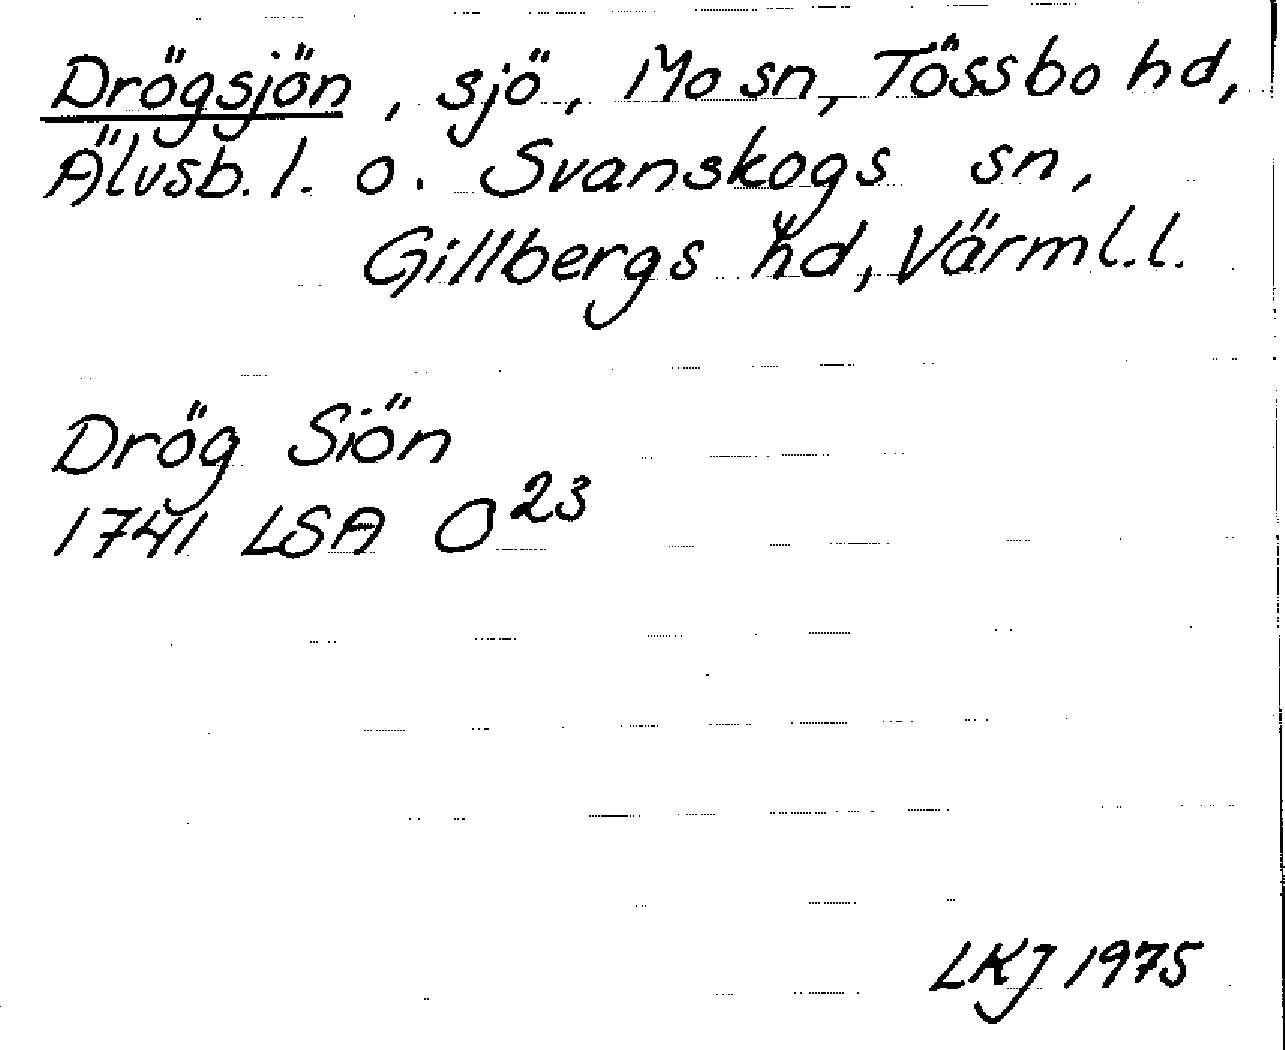 Drögsjön, sjö, Mo sn, Tössbo hd,
Älvsb. l. o. Svanskogs sn,
Gillbergs hd, Värml. l.
Drög Siön
1741 LSA O 23
LKJ 1975